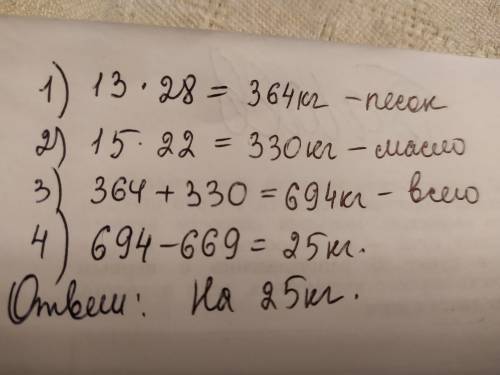 1) 13 · 28 = 364кг – песок
2) 15 · 22 = 330кг – масло
3) 364 + 330 = 694кг – всего
4) 694 – 669 = 25кг.
Ответ: На 25кг.